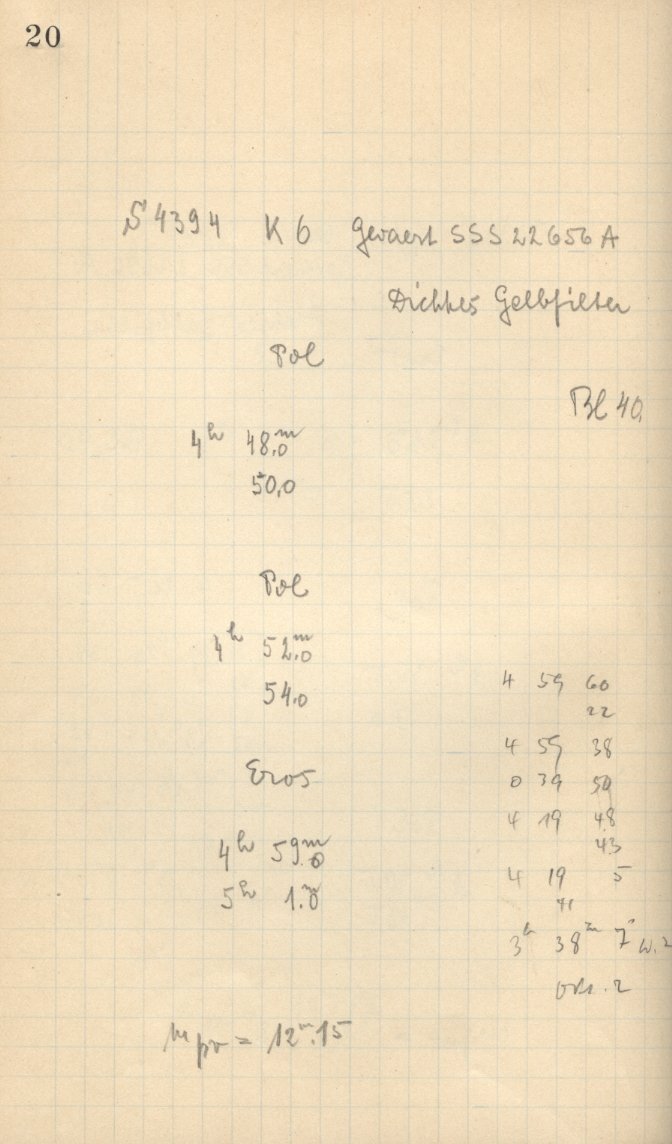 20
S 4394 K 6 Gevaert SSS 22656 A
Dichtes Gelbfilter
Pol
Bl 40
4h 48,0m
50,0
Pol
4h 52,0m
54,0
Eros
4h 59.0m
5h 1.0m
4 59 60
22
4 59 38
0 39 50
4 19 48
43
4 19 5
41
3h 38m 7s
2
mpv = 12m.15